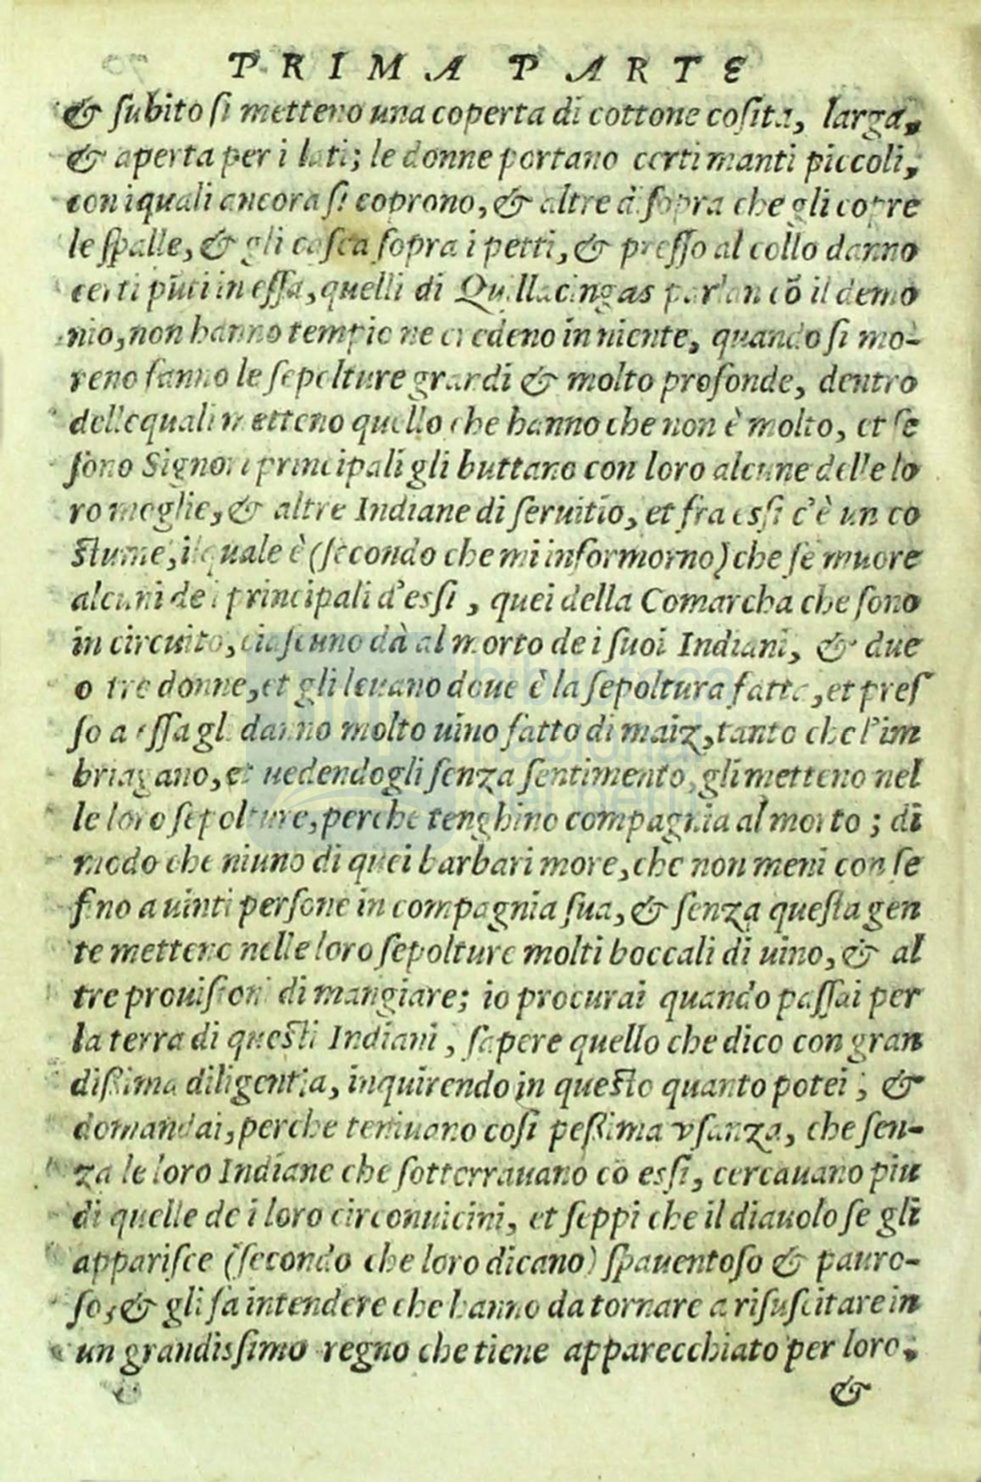 PRIMA PARTE
& ſubito ſi metteno una coperta di cottone coſita, larga,
& aperta per i lati; le donne portano certi manti piccoli,
con iquali ancora ſi coprono, & altre di ſopra che gli copre
le ſpalle, & gli caſca ſopra i petti, & preſſo al collo danno
certi pūti in eſſa, quelli di Quillacingas parlan cō il demo
nio, non hanno tempio ne credeno in niente, quando ſi mo-
reno fanno le ſepolture grandi & molto profonde, dentro
dellequali metteno quello che hanno che non è molto, et ſe
ſono Signori principali gli buttano con loro alcune delle lo
ro moglie, & altre Indiane di ſeruitio, et fra eſſi c'è un co
ſtume, ilquale è (ſecondo che mi informorno) che ſe muore
alcuni de i principali d'eſſi, quei della Comarcha che ſono
in circuito, ciaſcuno dà al morto de i ſuoi Indiani, & due
o tre donne, et gli leuano doue è la ſepoltura fatta, et preſ
ſo a eſſa gli danno molto uino fatto di maiz, tanto che l'im
briagano, et uedendogli ſenza ſentimento, gli metteno nel
le loro ſepolture, perche tenghino compagnia al morto; di
modo che niuno di quei barbari more, che non meni con ſe
fino a uinti perſone in compagnia ſua, & ſenza queſta gen
te metteno nelle loro ſepolture molti boccali di uino, & al
tre prouiſioni di mangiare; io procurai quando paſſai per
la terra di queſti Indiani, ſapere quello che dico con gran
diſſima diligentia, inquirendo in queſto quanto potei, &
domandai, perche teniuano coſi peſſima vſanza, che ſen-
za le loro Indiane che ſotterrauano cō eſſi, cercauano piu
di quelle de i loro circonuicini, et ſeppi che il diauolo ſe gli
appariſce (ſecondo che loro dicano) ſpauentoſo & pauro-
ſo, & gli fa intendere che hanno da tornare a riſuſcitare in
un grandiſſimo regno che tiene apparecchiato per loro,
&